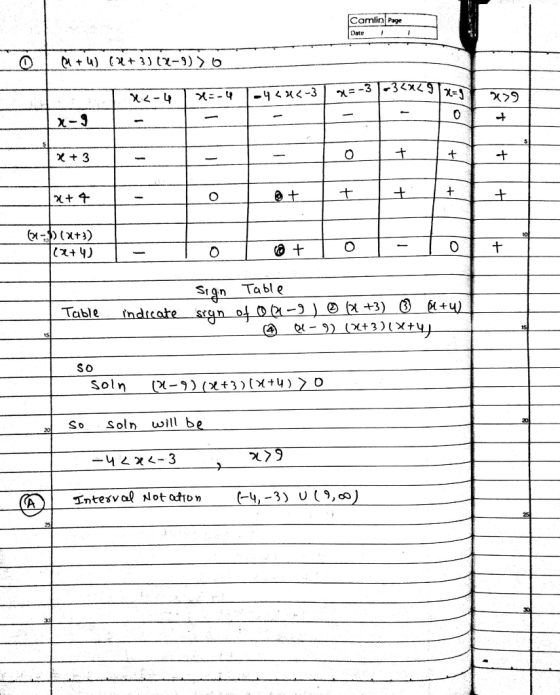 Camlin Page
Date / /
① (x+4) (x+3) (x-9) > 0
x<-4 x=-4 -4<x<-3 x=-3 -3<x<9 x=9 x>9
x-9 - - - - - 0 +
x+3 - - - 0 + + +
x+4 - 0 + + + + +
(x-9)(x+3)
(x+4) - 0 + 0 - 0 +
Sign Table
Table indicate sign of ① (x-9) ② (x+3) ③ (x+4)
④ (x-9) (x+3)(x+4)
so
Soln (x-9)(x+3)(x+4) > 0
So soln will be
-4<x<-3 , x>9
Ⓐ Interval Notation (-4,-3) ∪ (9,∞)
5
5
10
10
15
15
20
20
25
25
30
30